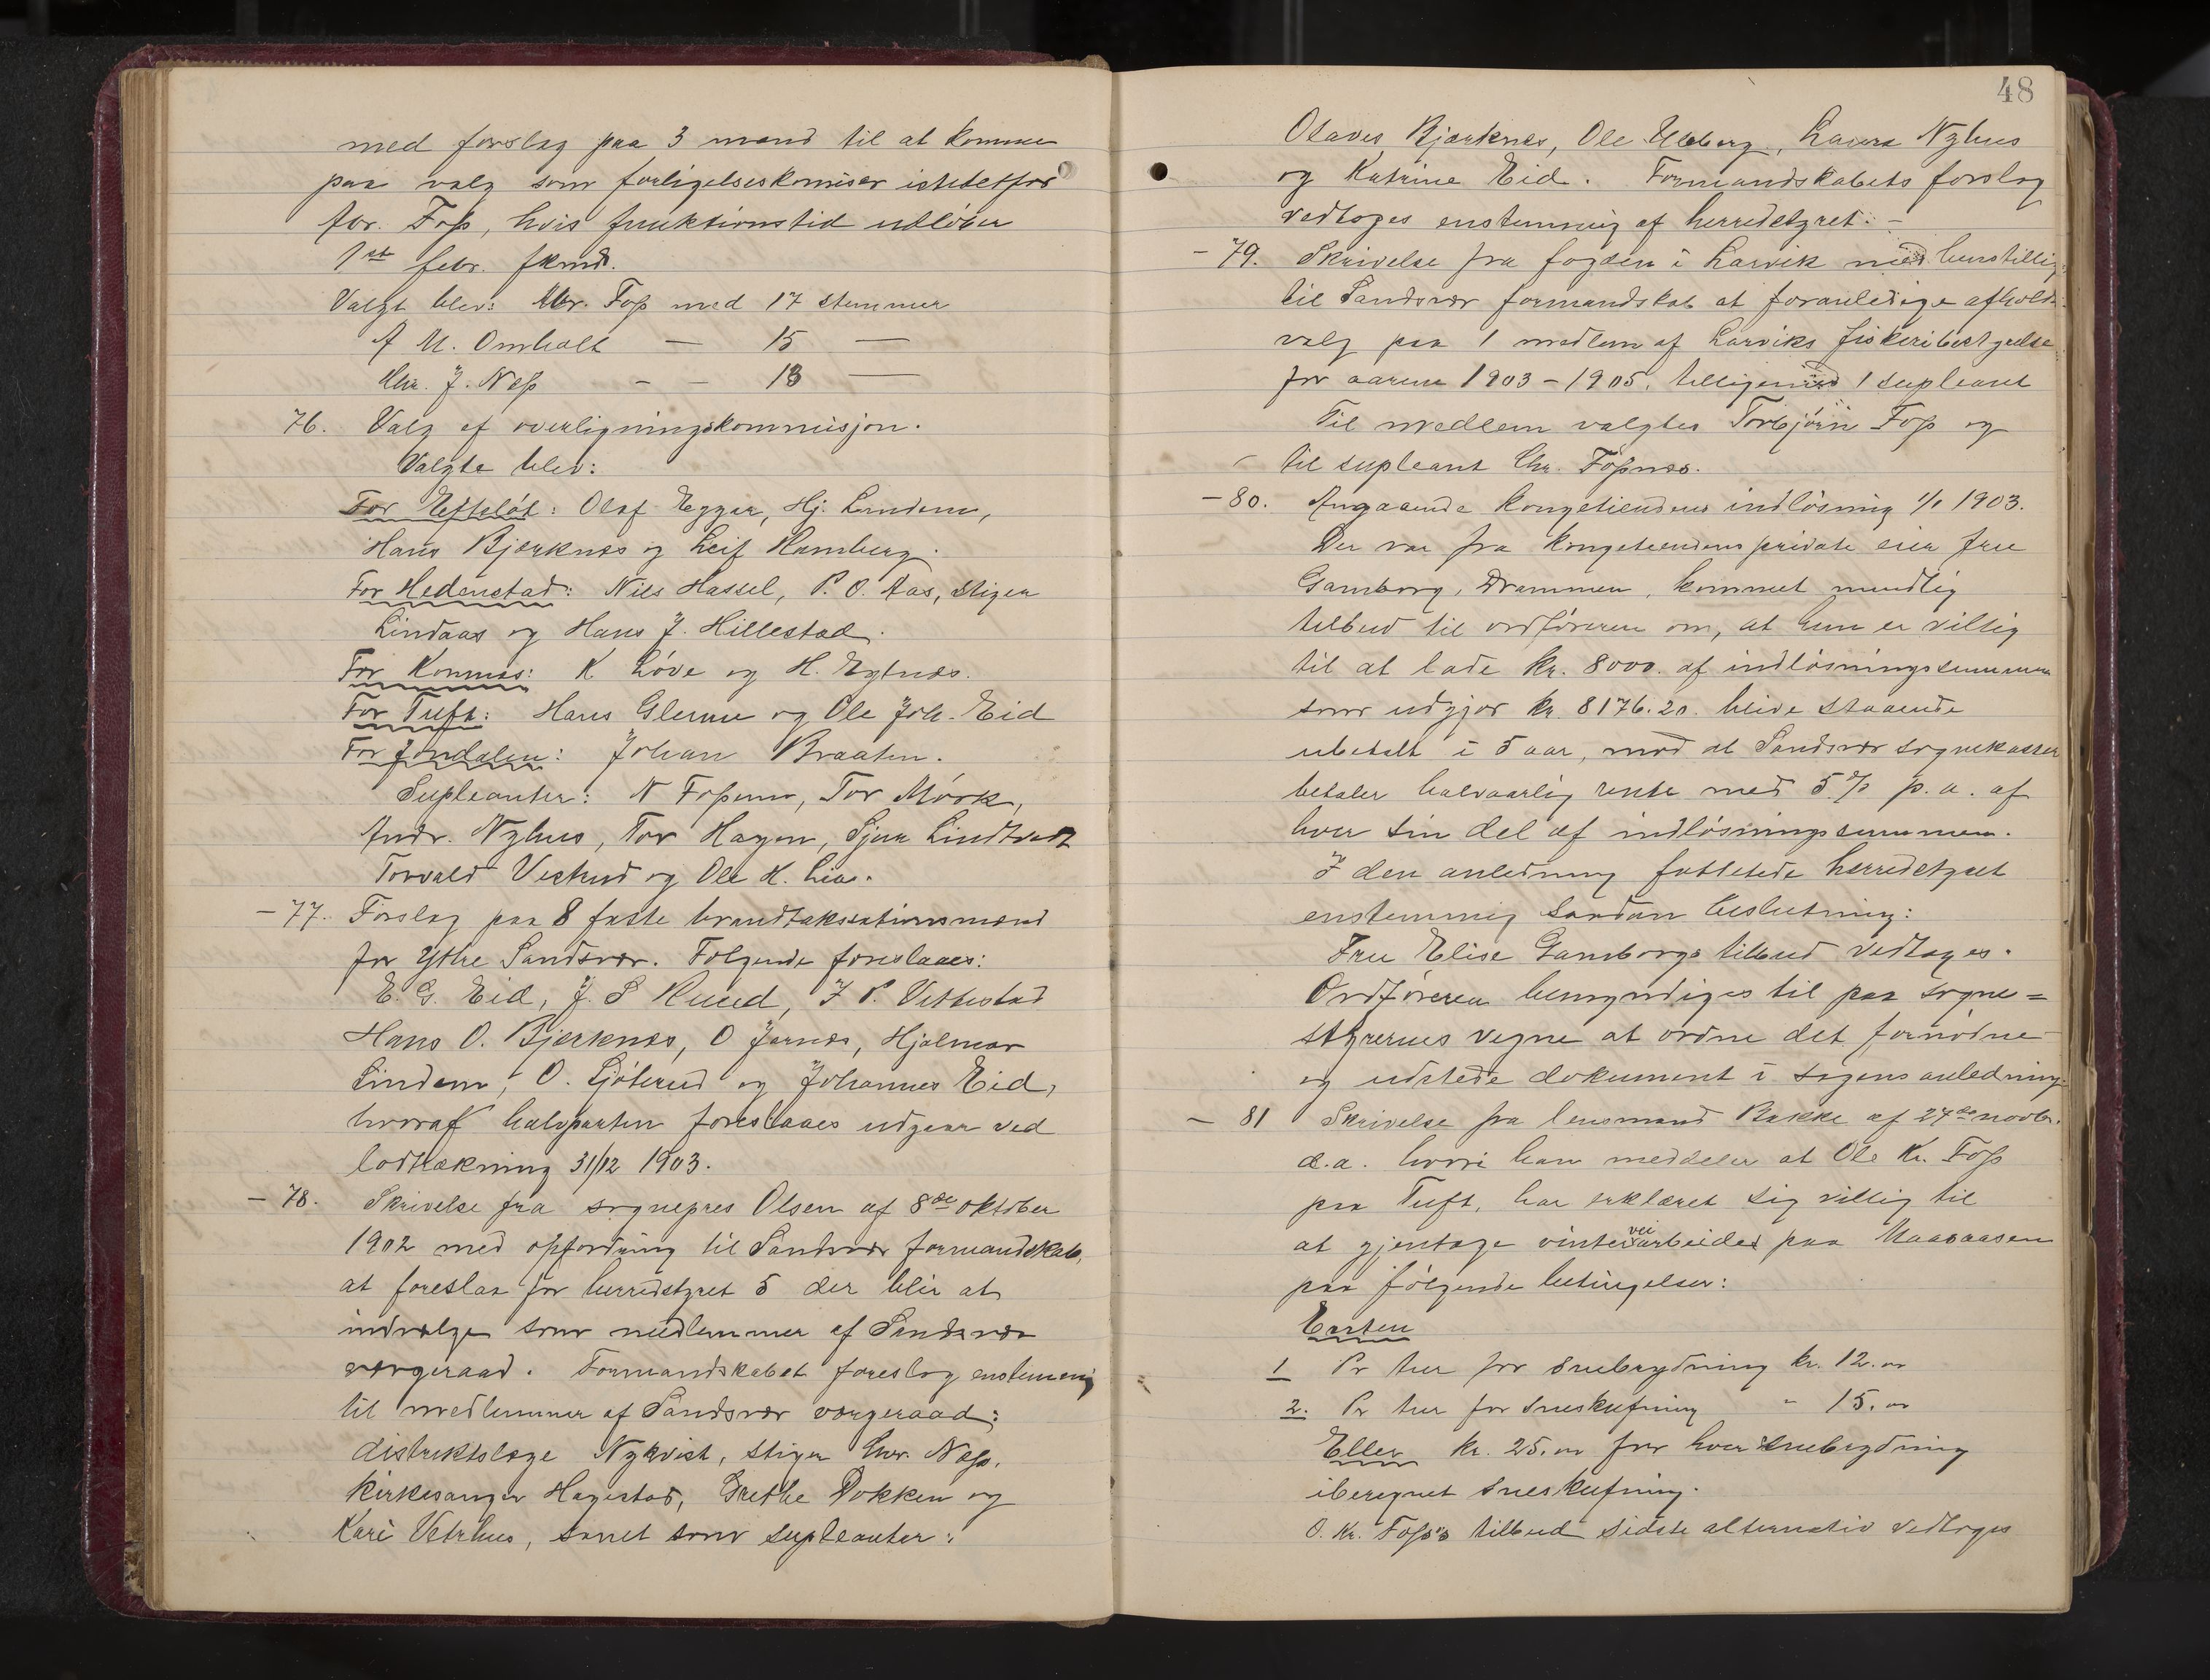 med forslag paa 3 mænd til at komme
paa valg som forligelseskomisær istedetfor
Foss, hvis funktionstid udløber
1ste febr. fkmd.
Valgt blev: Foss med 17 stemmer
A M. Omholt — 15 —
Chr. J. Næss - - 13 —
76. Valg af overligningskommisjon.
Valgte blev:
For Efteløt: Olaf Eggar, Hj. Lindem,
Hans Bjerknes og Leif Hamberg.
For Hedenstad: Nils Hassel, P. O. Aas, Stiger
Lindaas og Hans J. Hillestad.
For Komnæs: K Løve og H. Egtnæs.
For Tuft: Hans Glenne og Ole Joh. Eid
For Jondalen: Johan Braaten.
Supleanter: N Fossum, Tor Mørk,
Andr. Nyhus, Tor Hagen, Lindtvedt
Torvald Vestrud og Ole K. Lia.
- 77. Forslag paa 8 faste brandtaksationsmænd
for Ytre Sandsvær. Følgende foreslaaes:
E. G. Eid, J. S Ruud, J P. Vittestad
Hans O. Bjerknes, O Jarnæs, Hjalmar
Lindem, O. Sjøterud og Johannes Eid,
hvoraf halvparten foreslaaes udgaar ved
lodtrækning 31/12 1903.
- 78. Skrivelse fra sognepres Olsen af 8de oktober
1902 med opfordring til Sandsvær formandskab,
at foreslaa for herredstyret 5 der blir at
indvælge som medlemmer af Sandsvær
værgeraad. Formandskabet foreslog enstemmig
til medlemmer af Sandsvær værgeraad:
distriktslæge Nykvist, stiger Chr. Næss,
kirkesanger Hagestad, Grethe Dokken og
Kari Vetrhus, samt som supleanter:
48
Olaves Bjerknes, Ole Ulleberg, Laura Nyhus
og Katrine Eid. Formandskabets forslag
vedtoges enstemmig af herredstyret. -
- 79. Skrivelse fra fogden i Larvik med henstilling
til Sandsvær formandskab at foranledige afholdt
valg paa 1 medlem af Larviks fiskeribestyrelse
for aarene 1903-1905, tilligemed 1 supleant
Til medlem valgtes Torbjørn Foss og
til supleant Chr. Fossnæs.
- 80. Angaaende kongetiendens indløsning 1/1 1903.
Der var fra kongetiendens private eier fru
Gamborg, Drammen, kommet mundlig
tilbud til ordføreren om, at hun er villig
til at lade kr. 8000. af indløsningssummen
som udgjør kr. 8176.20. blive staaende
ubetalt i 5 aar, mod at Sandsvær sognekasser
betaler halvaarlig rente med 5 % p.a. af
hver sin del af indløsningssummen.
I den anledning fattetede herredstyret
enstemmig saadan beslutning:
Fru Elise Gamborgs tilbud vedtages.
Ordføreren bemyndiges til paa sogne=
styrernes vegne at ordne det fornødne
og udstede dokument i sagens anledning.
- 81 Skrivelse fra lensmand Bakke af 27de novbr.
d.a. hvori han meddeler at Ole Kr. Foss
paa Tuft, har erklæret sig villig til
at gjentage vintervei arbeidet paa Maasaasen
paa følgende betingelser:
Enten
1 Pr tur for snebrydning kr. 12.00
2. Pr tur for sneskufning " 15.00
Eller kr. 25.00 for hver snebrydning
iberegnet sneskufning.
O. Kr. Foss's tilbud sidste alternativ vedtoges